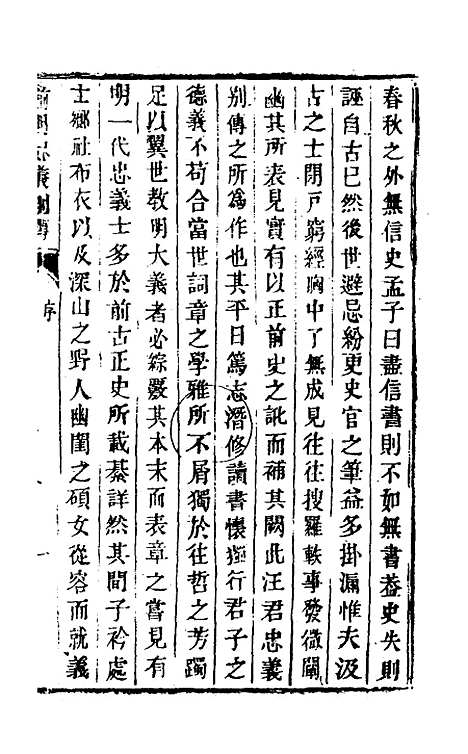 春秋之外無信史孟子曰盡信書則不如無書葢史失則
誣自古已然後世避忌紛更史官之筆益多掛漏惟夫汲
古之士閉戸窮經胸中了無成見往往搜羅軼事發微闡
幽其所表見實有以正前史之訛而補其闕此汪君忠義
别傳之所爲作也其平日篤志潛修讀書懐獨行君子之
德義不苟合當世詞章之學雅所不屑獨於往哲之芳躅
足以翼世教明大義者必綜覈其本末而表章之嘗見有
明一代忠義士多於前古正史所載綦詳然其間子衿處
士鄉社布衣以及深山之野人幽閨之碩女從容而就義
前明忠義别傳
序
一